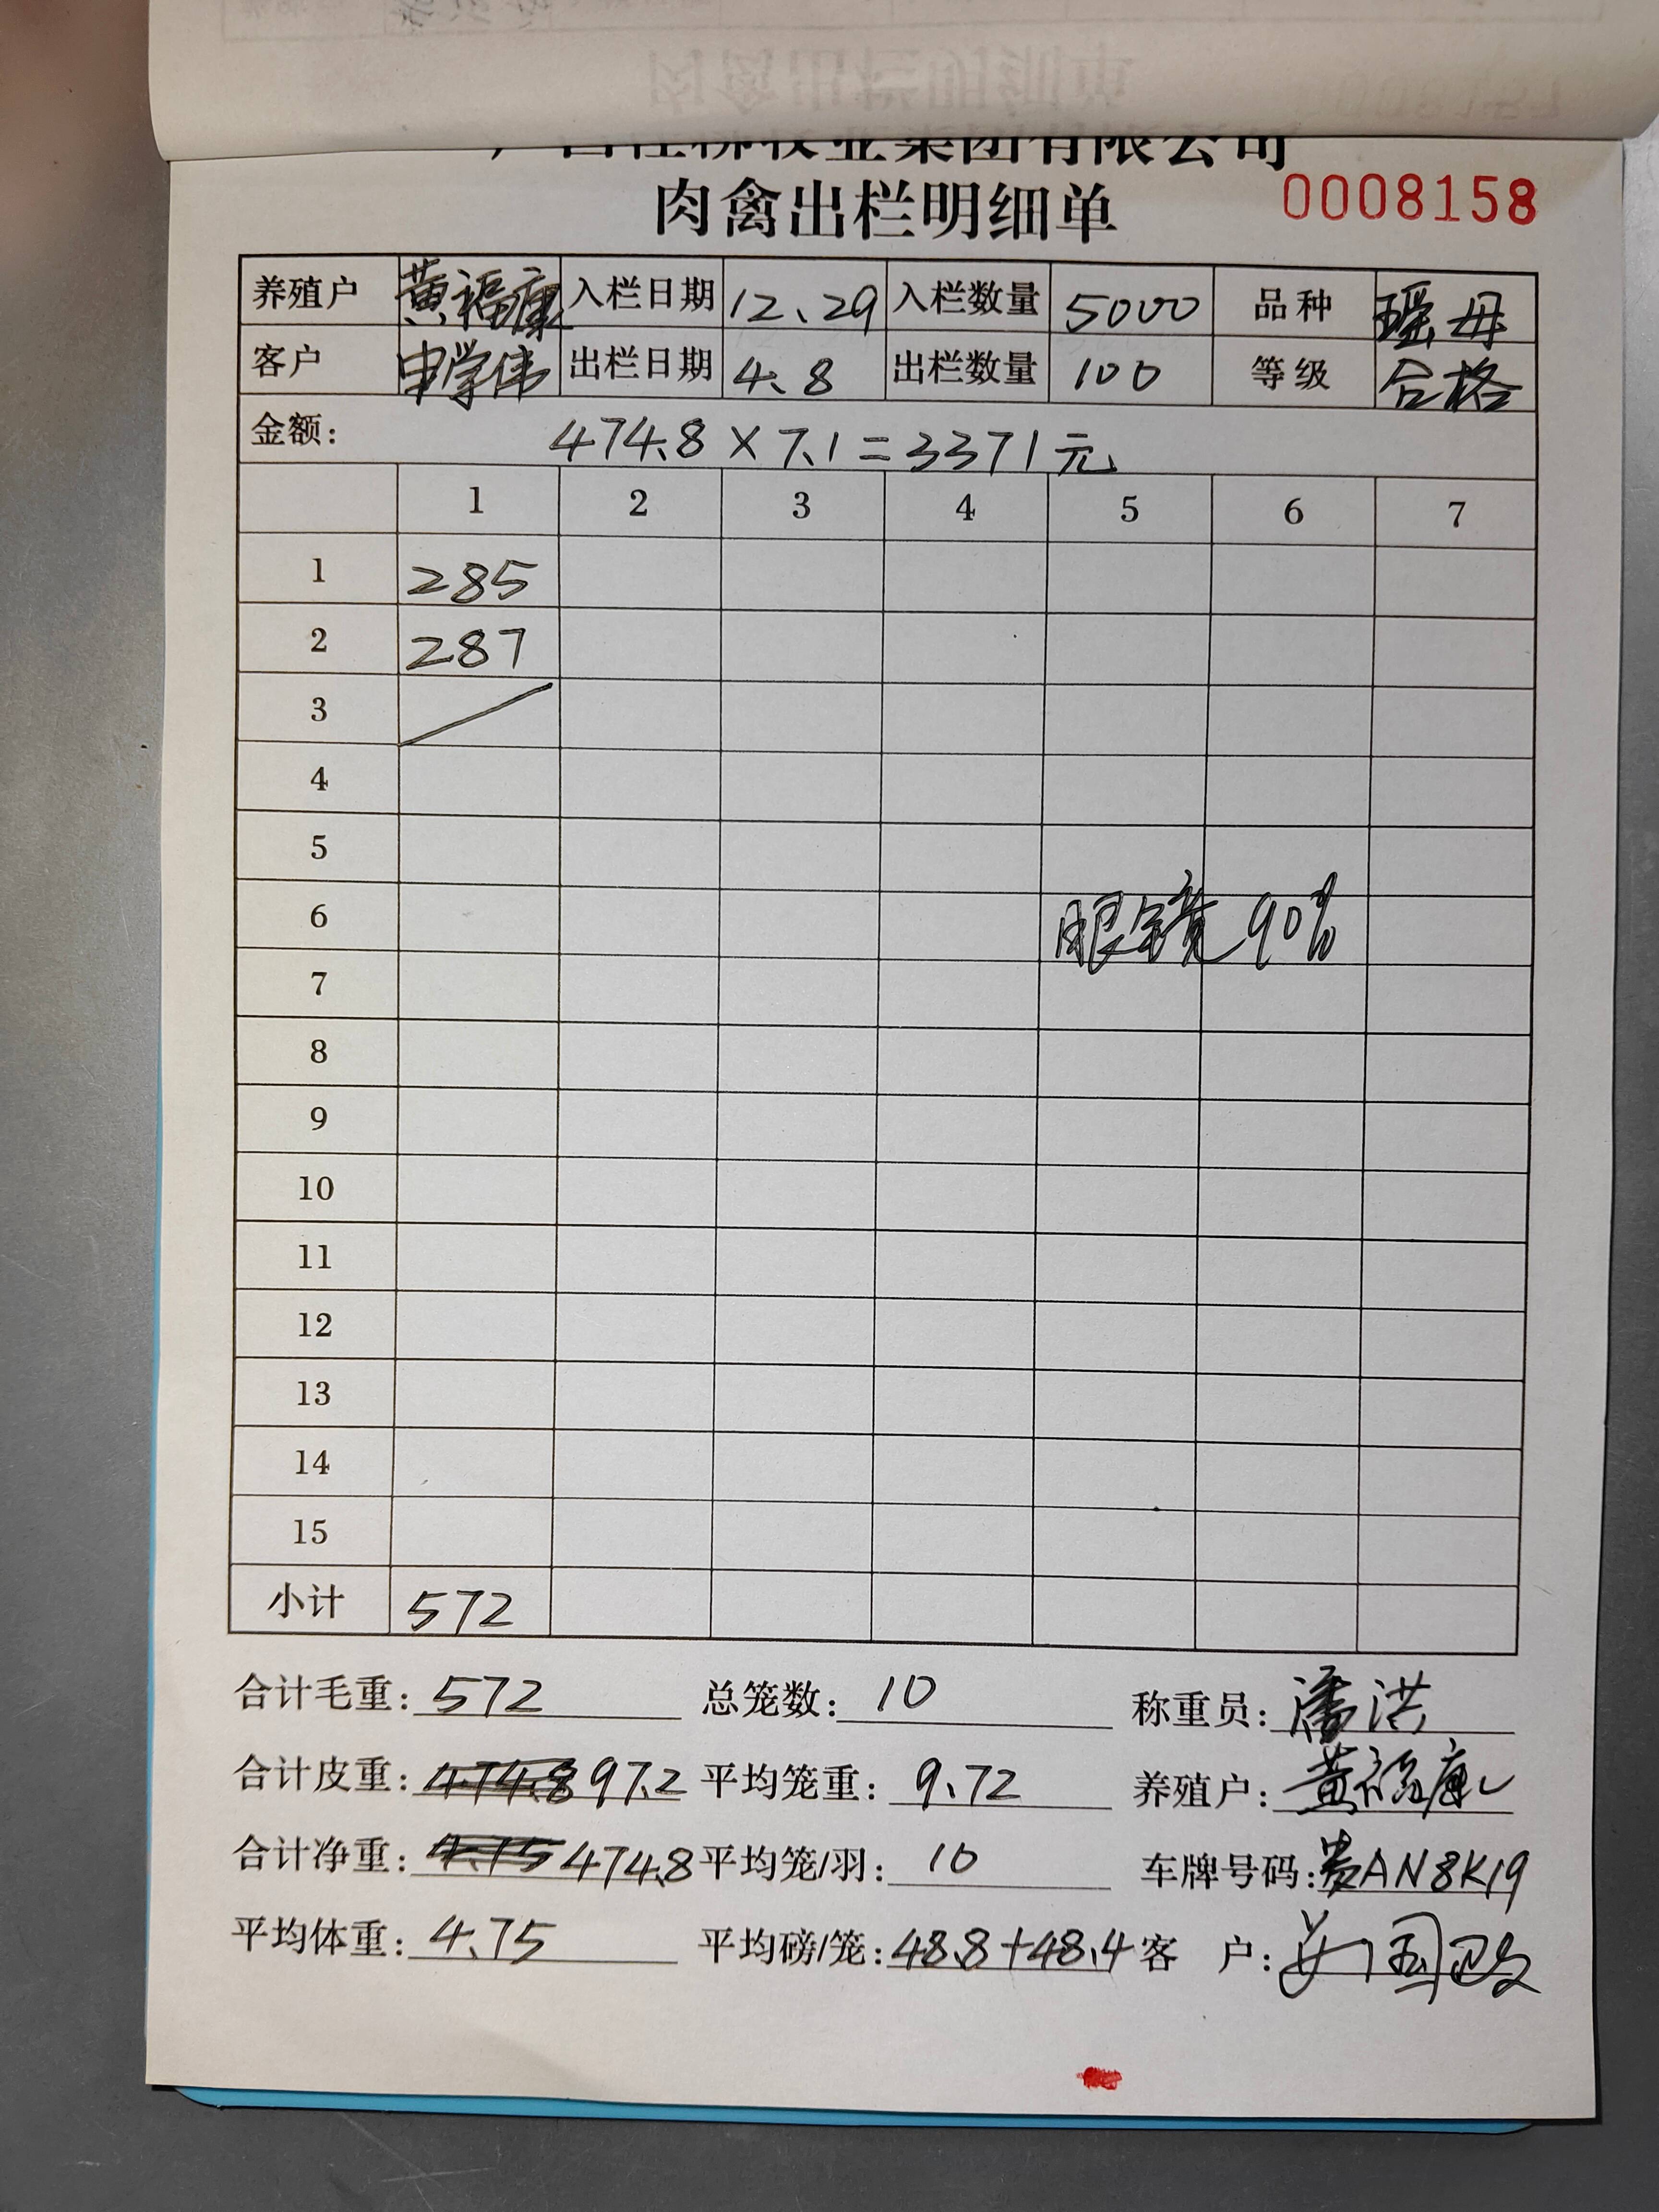 广西桂柳牧业集团有限公司
肉禽出栏明细单 0008158
养殖户 黄福康 入栏日期 12.29 入栏数量 5000 品种 瑶母
客户 申学伟 出栏日期 4.8 出栏数量 100 等级 合格
金额: 474.8×7.1=3371元
1 2 3 4 5 6 7
1 285
2 287
3
4
5
6 眼镜90%
7
8
9
10
11
12
13
14
15
小计 572
合计毛重: 572 总笼数: 10 称重员: 潘洪
合计皮重: 97.2 平均笼重: 9.72 养殖户: 黄福康
合计净重: 474.8 平均笼/羽: 10 车牌号码: 贵AN8K19
平均体重: 4.75 平均磅/笼: 48.8+48.4 客 户: